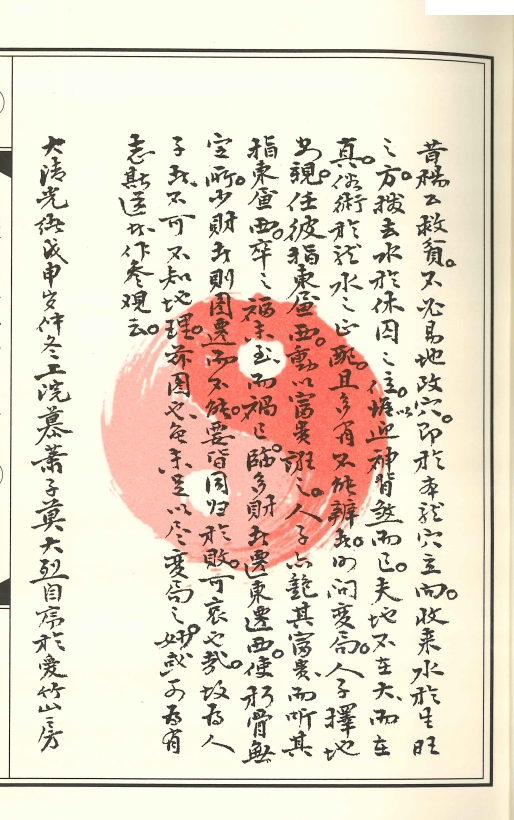 昔楊公救貧。不必易地改穴。即於本龍穴立向。收來水於生旺
之方。撥去水於休囚之位。以迎神背煞而已。夫地不在大而在
真。俗術於龍水之正配。且多有不能辨者。何問變局。人子擇地
任彼指東盧西。動以富貴誑之。人子亦艷其富貴。而聽其
指東盧西。卒之福未至而禍已臨。多財者遷東遷西。使朽骨無
定所。少財者則因遷而不能。要皆同归於敗。可哀也哉。故為人
子者。不可不知地理。茲图也。雖未足以尽變局之妙。或可為有
志斯道者作參观云。
大清光緒戊申岁仲冬上浣慕蕭子莫大烈自序於愛竹山房